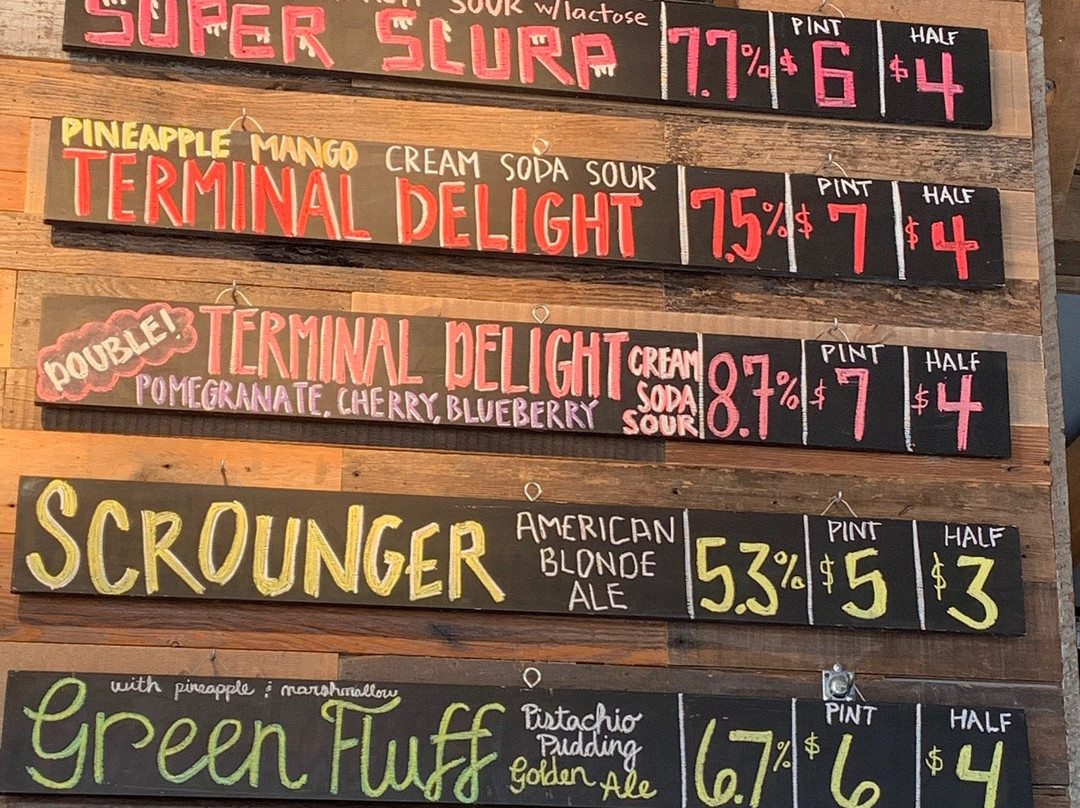 SOUR w/lactose
SUPER SLURP 7.7% PINT $6 HALF $4
PINEAPPLE MANGO CREAM SODA SOUR
TERMINAL DELIGHT 7.5% PINT $7 HALF $4
DOUBLE! TERMINAL DELIGHT CREAM SODA SOUR 8.7% PINT $7 HALF $4
POMEGRANATE, CHERRY, BLUEBERRY
SCROUNGER AMERICAN BLONDE ALE 5.3% PINT $5 HALF $3
with pineapple & marshmallow
Green Fluff Pistachio Pudding Golden Ale 6.7% PINT $6 HALF $4